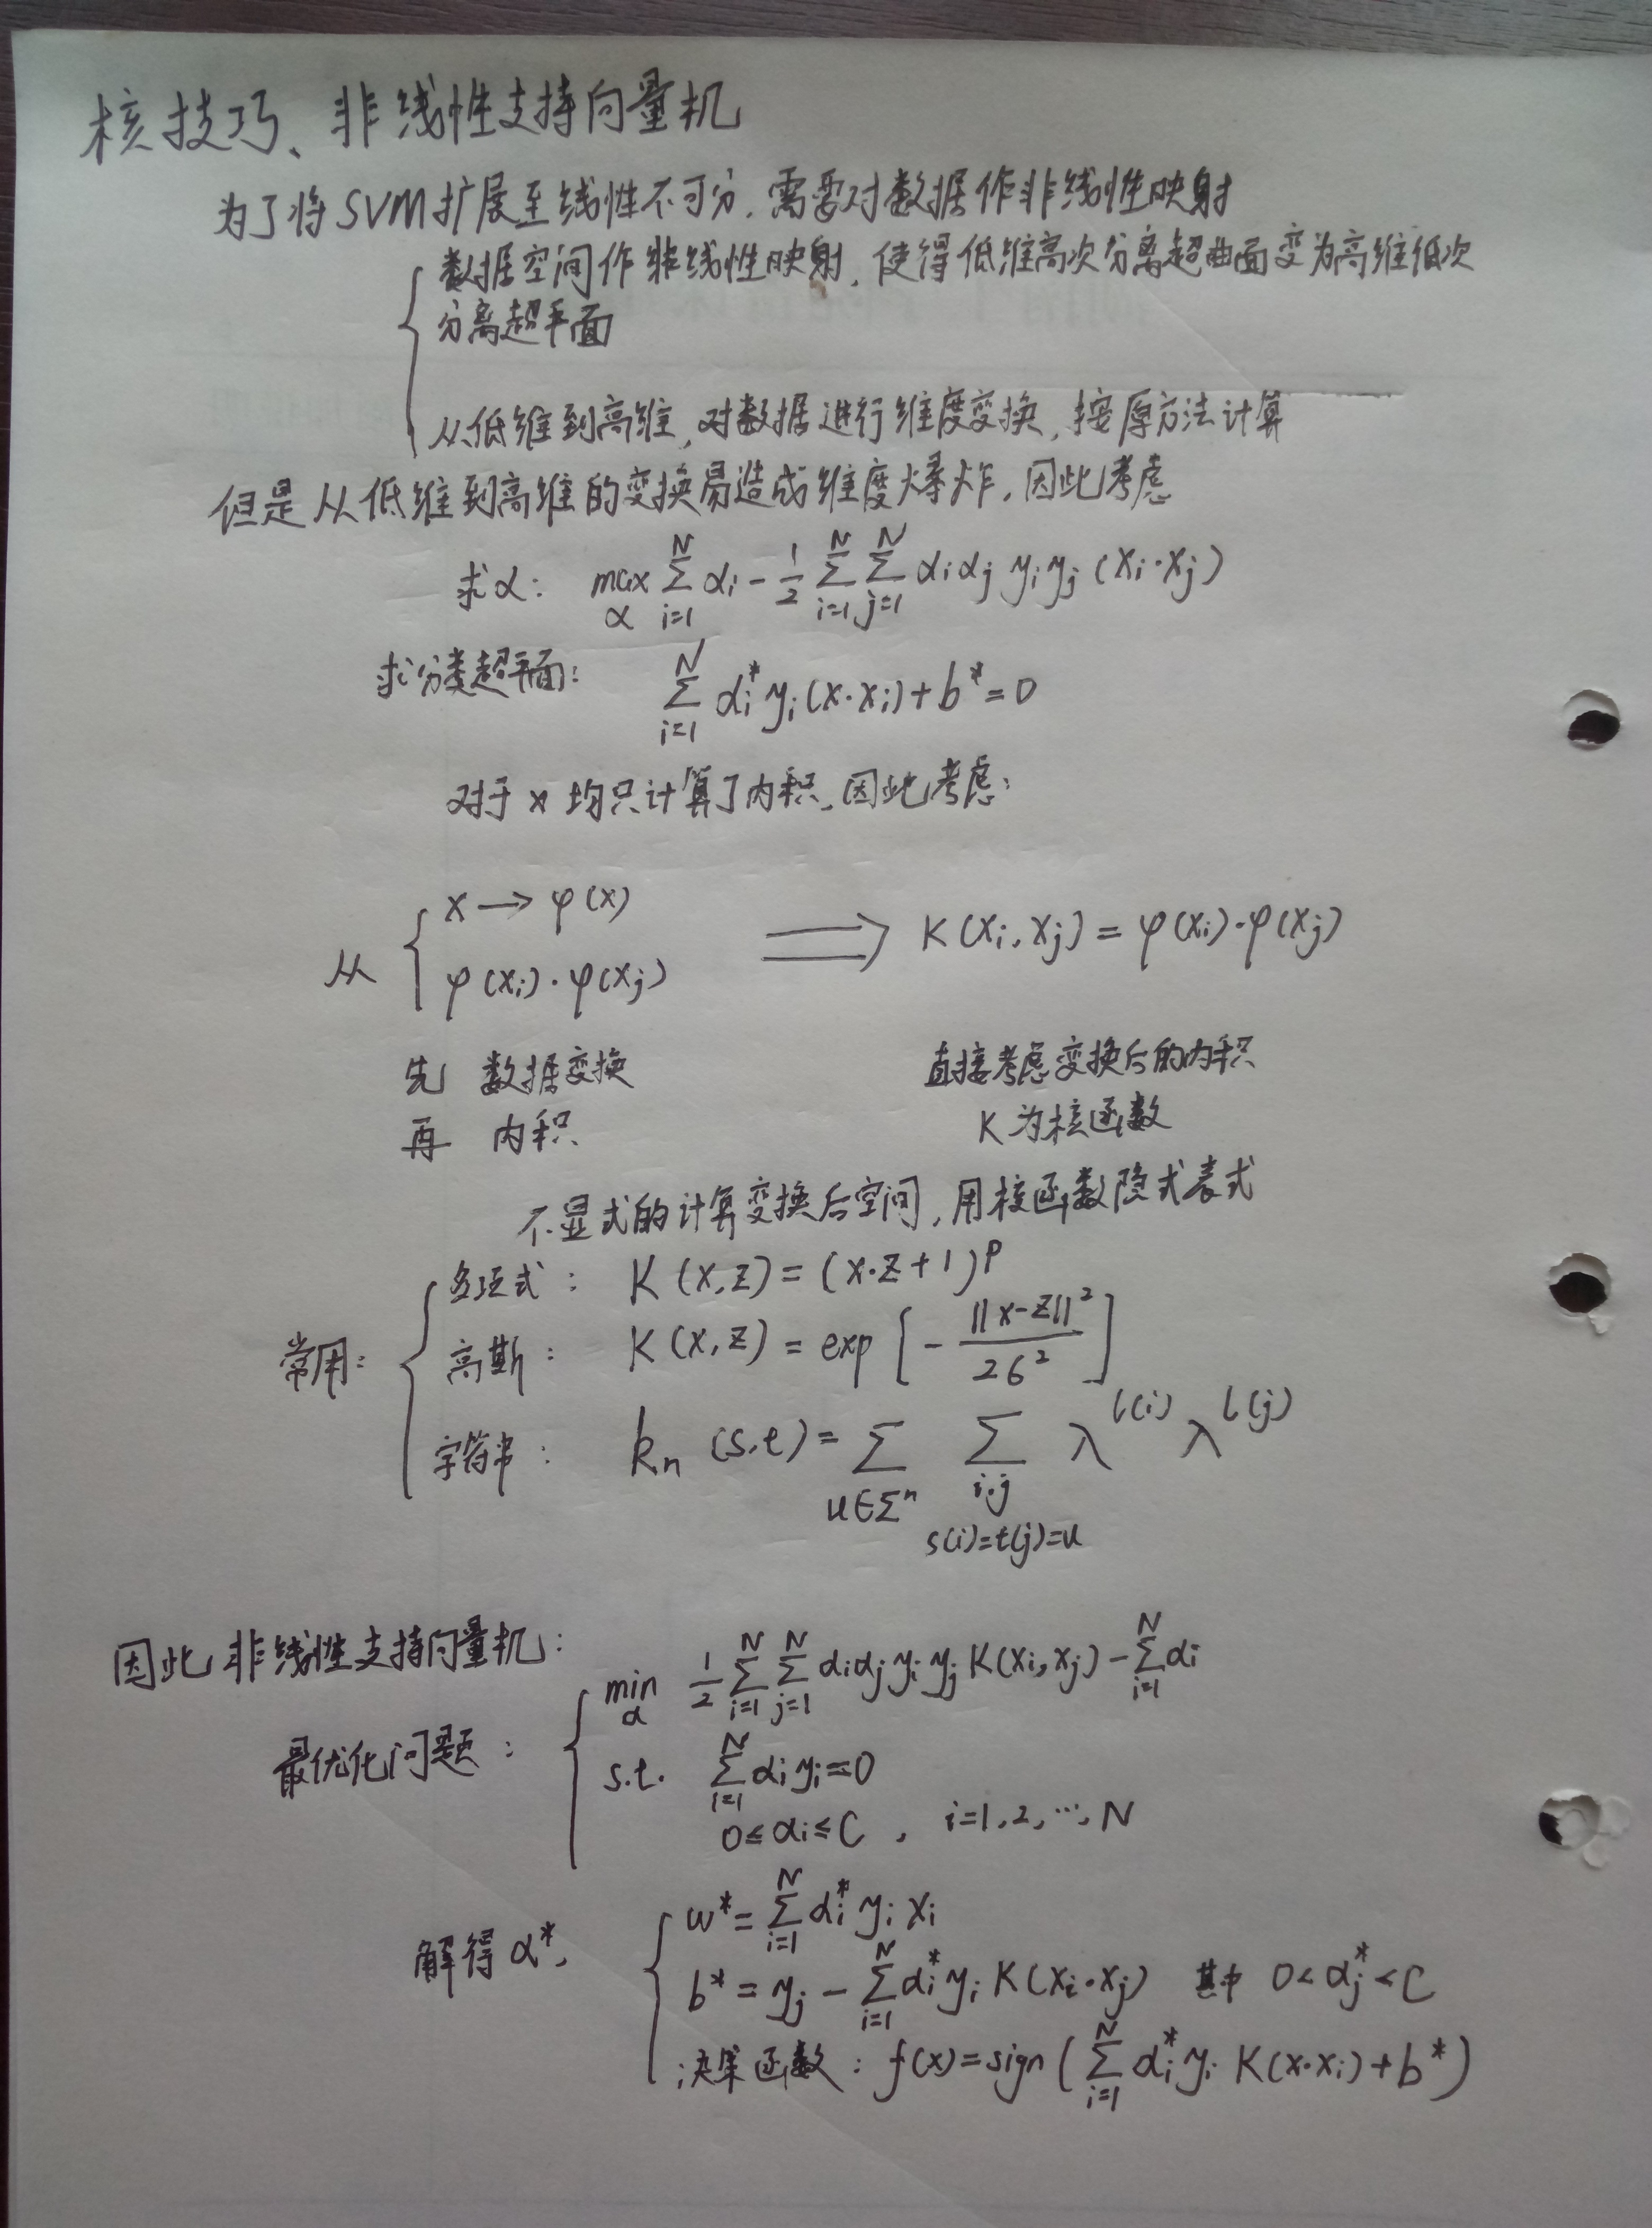 核技巧、非线性支持向量机
为了将SVM扩展至线性不可分，需要对数据作非线性映射
数据空间作非线性映射，使得低维高次分离超曲面变为高维低次
分离超平面
从低维到高维，对数据进行维度变换，按原方法计算
但是从低维到高维的变换易造成维度爆炸，因此考虑
求α： max_α Σ_{i=1}^{N} αi - 1/2 Σ_{i=1}^{N} Σ_{j=1}^{N} αi αj yi yj (xi·xj)
求分类超平面： Σ_{i=1}^{N} αi* yi (x·xi) + b* = 0
对于x均只计算了内积，因此考虑：
从 { x → φ(x) ⟹ K(xi, xj) = φ(xi)·φ(xj)
φ(xi)·φ(xj)
先 数据变换 直接考虑变换后的内积
再 内积 K为核函数
不显式的计算变换后空间，用核函数隐式表式
常用：
多项式： K(x,z) = (x·z+1)^p
高斯： K(x,z) = exp[ - ||x-z||² / 2σ² ]
字符串： kn(s,t) = Σ_{u∈Σ^n} Σ_{i,j s(i)=t(j)=u} λ^{l(i)} λ^{l(j)}
因此非线性支持向量机：
最优化问题： min_α 1/2 Σ_{i=1}^{N} Σ_{j=1}^{N} αi αj yi yj K(xi, xj) - Σ_{i=1}^{N} αi
s.t. Σ_{i=1}^{N} αi yi = 0
0 ≤ αi ≤ C , i=1,2,…,N
解得α*, w* = Σ_{i=1}^{N} αi* yi xi
b* = yj - Σ_{i=1}^{N} αi* yi K(xi·xj) 其中 0<αj*<C
决策函数： f(x) = sign( Σ_{i=1}^{N} αi* yi K(x·xi) + b* )